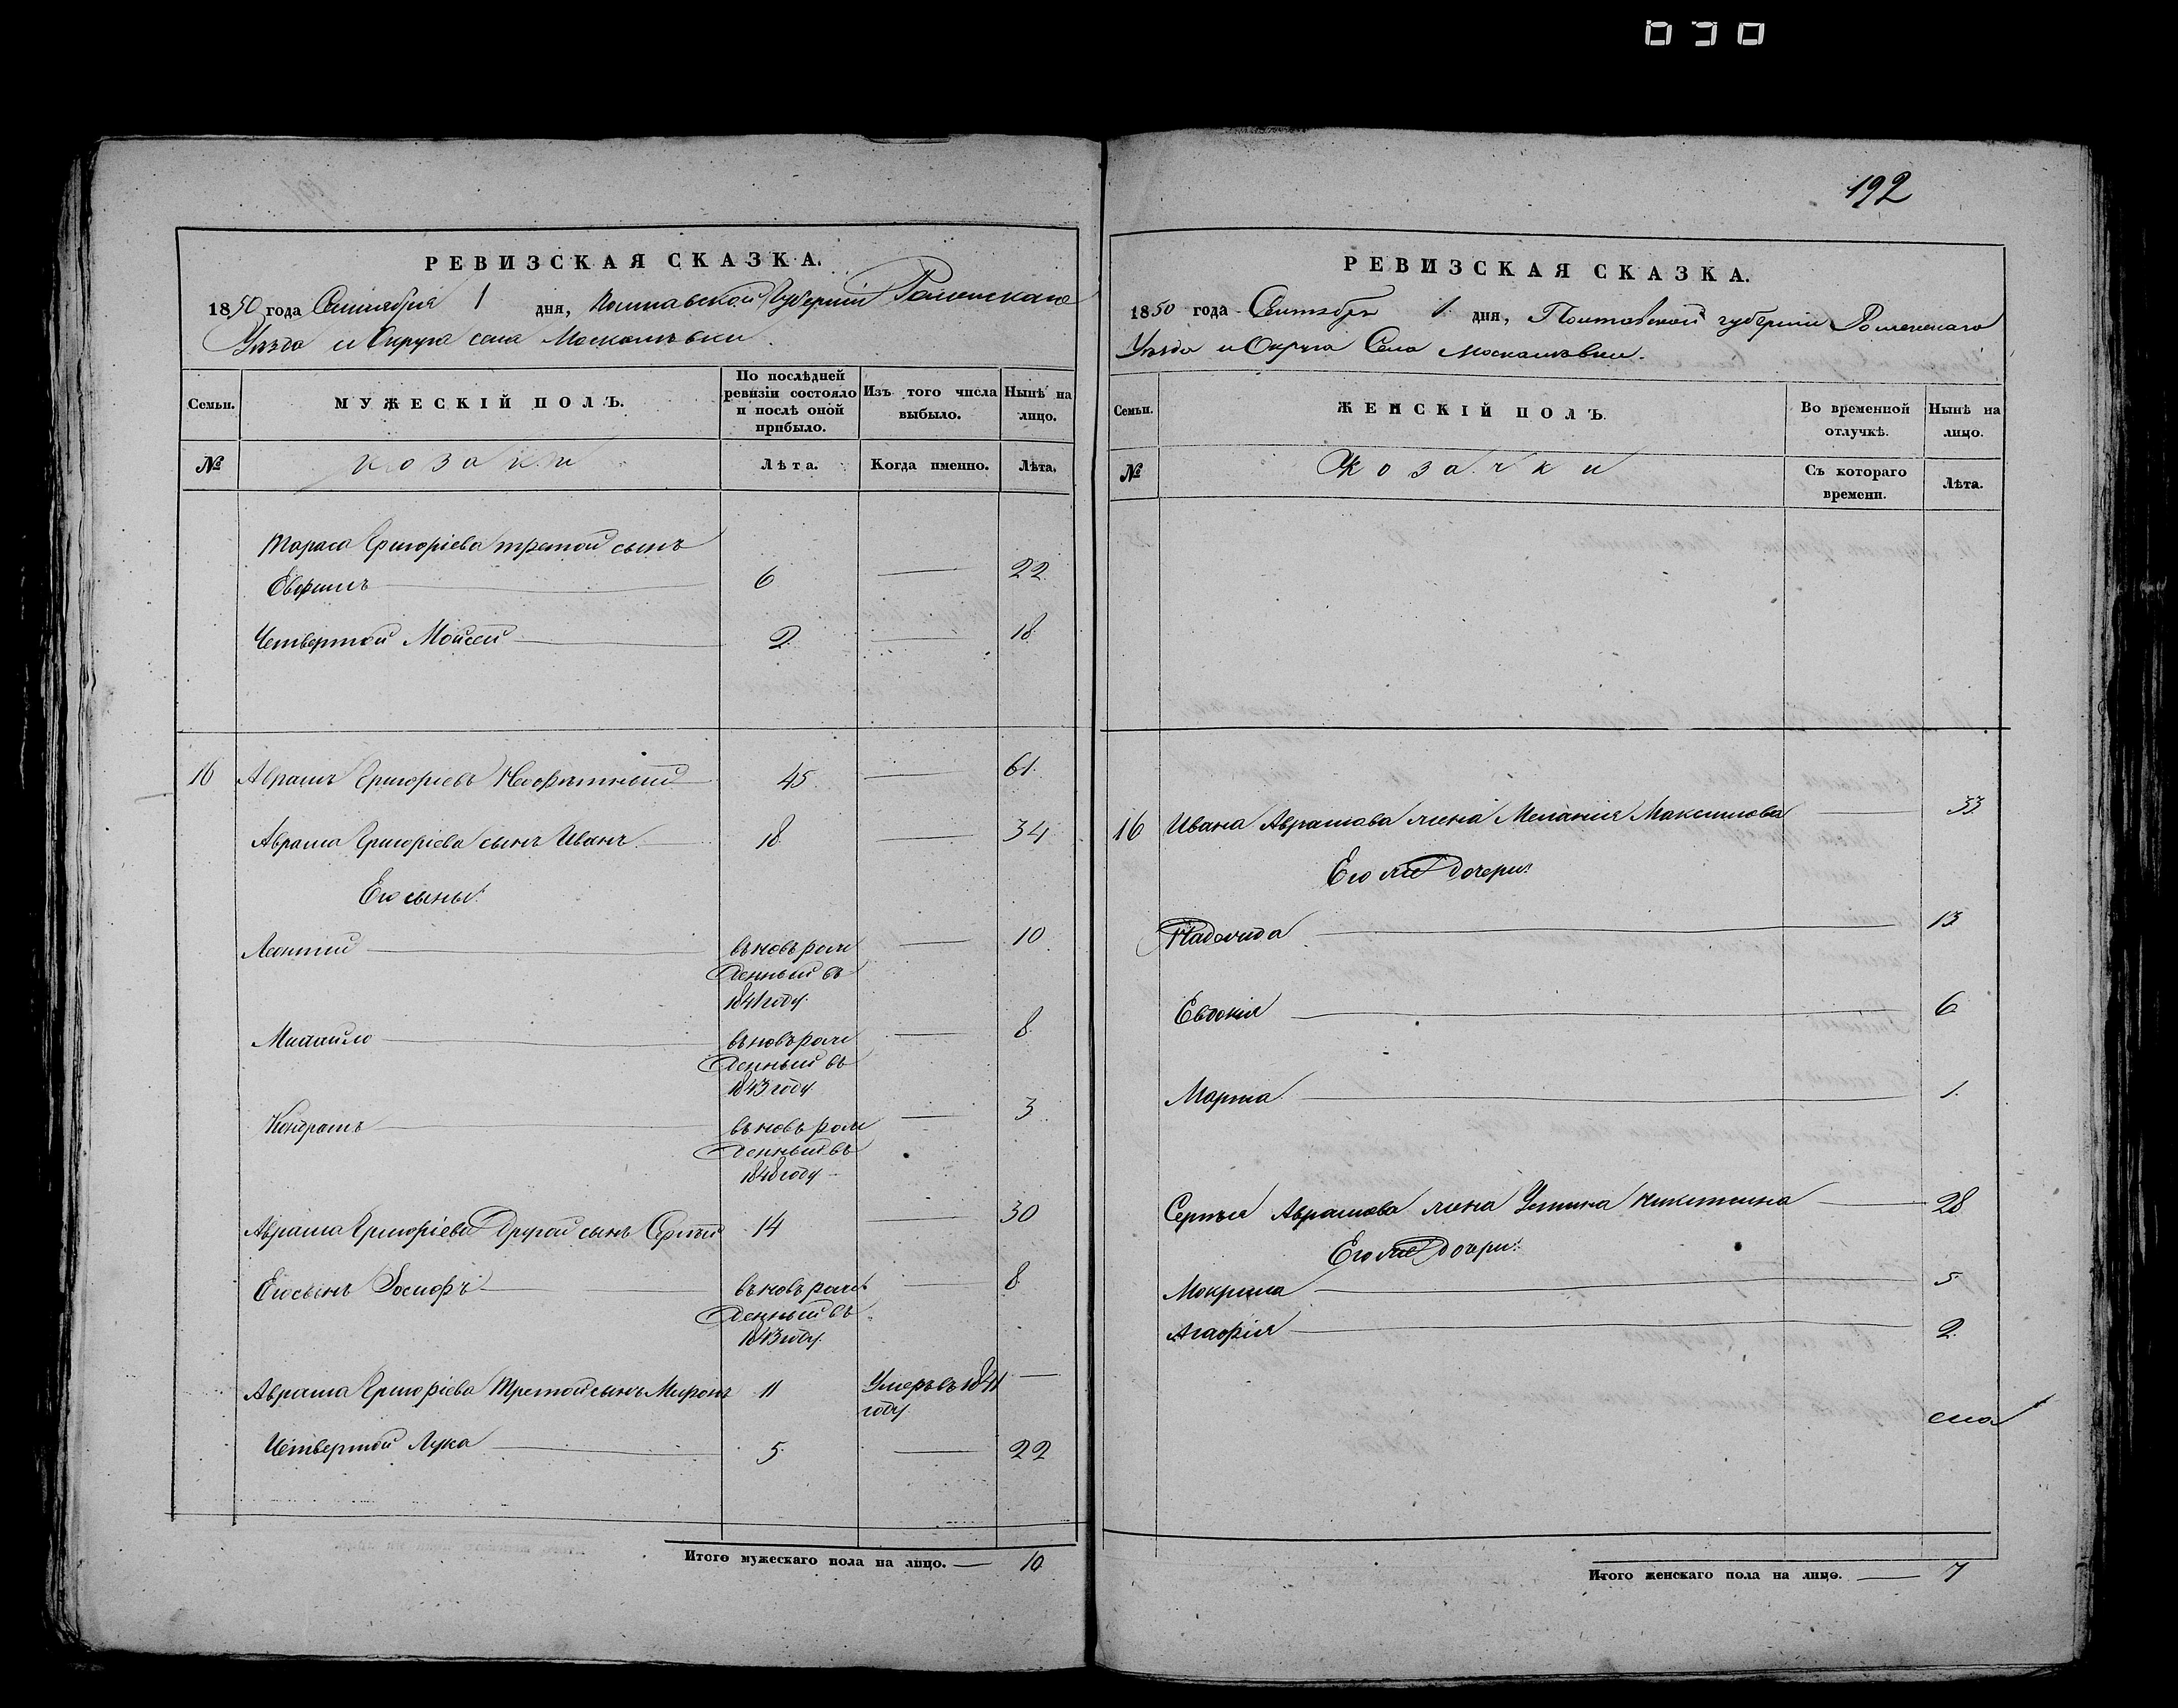 030
192
РЕВИЗСКАЯ СКАЗКА.
1850 года Сентября 1 дня, Полтавской Губерніи Роменскаго
Уѣзда и Округа села Москалѣвки
Семьи.
МУЖЕСКІЙ ПОЛЪ.
По послѣдней
ревизіи состояло
и послѣ оной
прибыло.
Изъ того числа
выбыло.
Нынѣ на
лицо.
№
козаки
Лѣта.
Когда именно.
Лѣта.
Тараса Григоріева третой сынъ
Евфимъ 6 — 22
Четвертой Мойсей 2 — 18
16 Аврамъ Григоріевъ 45 — 61
Аврама Григоріева сынъ Иванъ 18 — 34
Его сыны:
Леонтий вьновь рож — 10
денный въ
1841 году.
Михайло вьновь рож — 8
денный въ
1843 году
Кондратъ вьновь рож — 3
денный въ
1848 году
Аврама Григоріева Другой сынъ Сергѣй 14 — 30
Его сынъ Іосифъ вьновь рож — 8
денный въ
1843 году
Аврама Григоріева Третой сынъ Миронъ 11 Умеръ въ 1841 —
году
Четвертой Лука 5 — 22
Итого мужескаго пола на лицо. — 10
РЕВИЗСКАЯ СКАЗКА.
1850 года Сентября 1 дня, Полтавской губерніи Роменскаго
Уѣзда и Округа Села Москалѣвки.
Семьи.
ЖЕНСКІЙ ПОЛЪ.
Во временной
отлучкѣ.
Нынѣ на
лицо.
№
Козачки
Съ котораго
времени.
Лѣта.
16 Ивана Аврамова жена Меланія Максимова — 33
Его же дочери:
13
Евдокія 6
Марта 1
Сергѣя Аврамова жена Устина Никитина — 28
Его же дочери:
Мокрина 5
Агафія 2
Итого женскаго пола на лицо. — 7